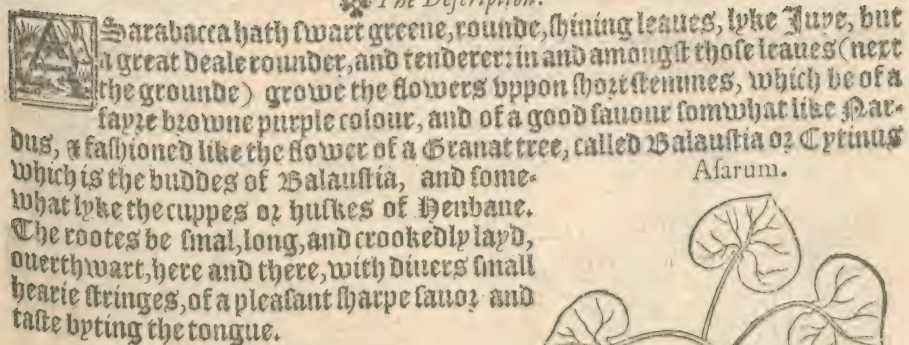 The Description.
ASarabacca hath swart greene, rounde, shining leaues, lyke Juye, but
a great deale rounder, and tenderer: in and amongst those leaues (next
the grounde) growe the flowers vppon short stemmes, which be of a
fayre browne purple colour, and of a good sauour somwhat like Nar-
dus, & fashioned like the flower of a Granat tree, called Balaustia or Cytinus
which is the buddes of Balaustia, and some-
what lyke the cuppes or huskes of Henbane.
The rootes be smal, long, and crookedly layd,
ouerthwart, here and there, with diuers small
hearie stringes, of a pleasant sharpe sauor and
taste byting the tongue.
Asarum.